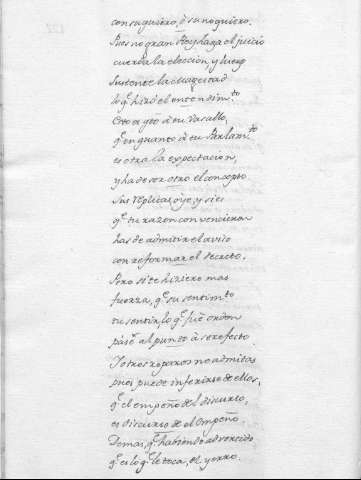 con su quiero, ò su no quiero.
Pues no gran Rey haga el juicio
cuerda la eleccion, y luego
sustente la
lo q̃ hizo el entendim.to
Esto es q.to à tu Vasallo,
q̃ en quanto à tu Parlam.to
es otra la expectacion,
y ha de ser otro el concepto.
Sus replicas oye, y si es
q̃ tu razon convencieron
has de admitir el aviso
con reformar el decreto.
Pero si te hiziere mas
fuerza, q̃ su sentim.to
tu sentir, lo q̃ fuè orden
pase al punto à ser efecto.
Y otros reparos no admitas
pues puede inferirse de ellos,
q̃ el empeño del discurso,
es discurso de el empeño.
Demas, q̃ habiendo advertido
q̃ es lo q̃ le toca, el yerro.